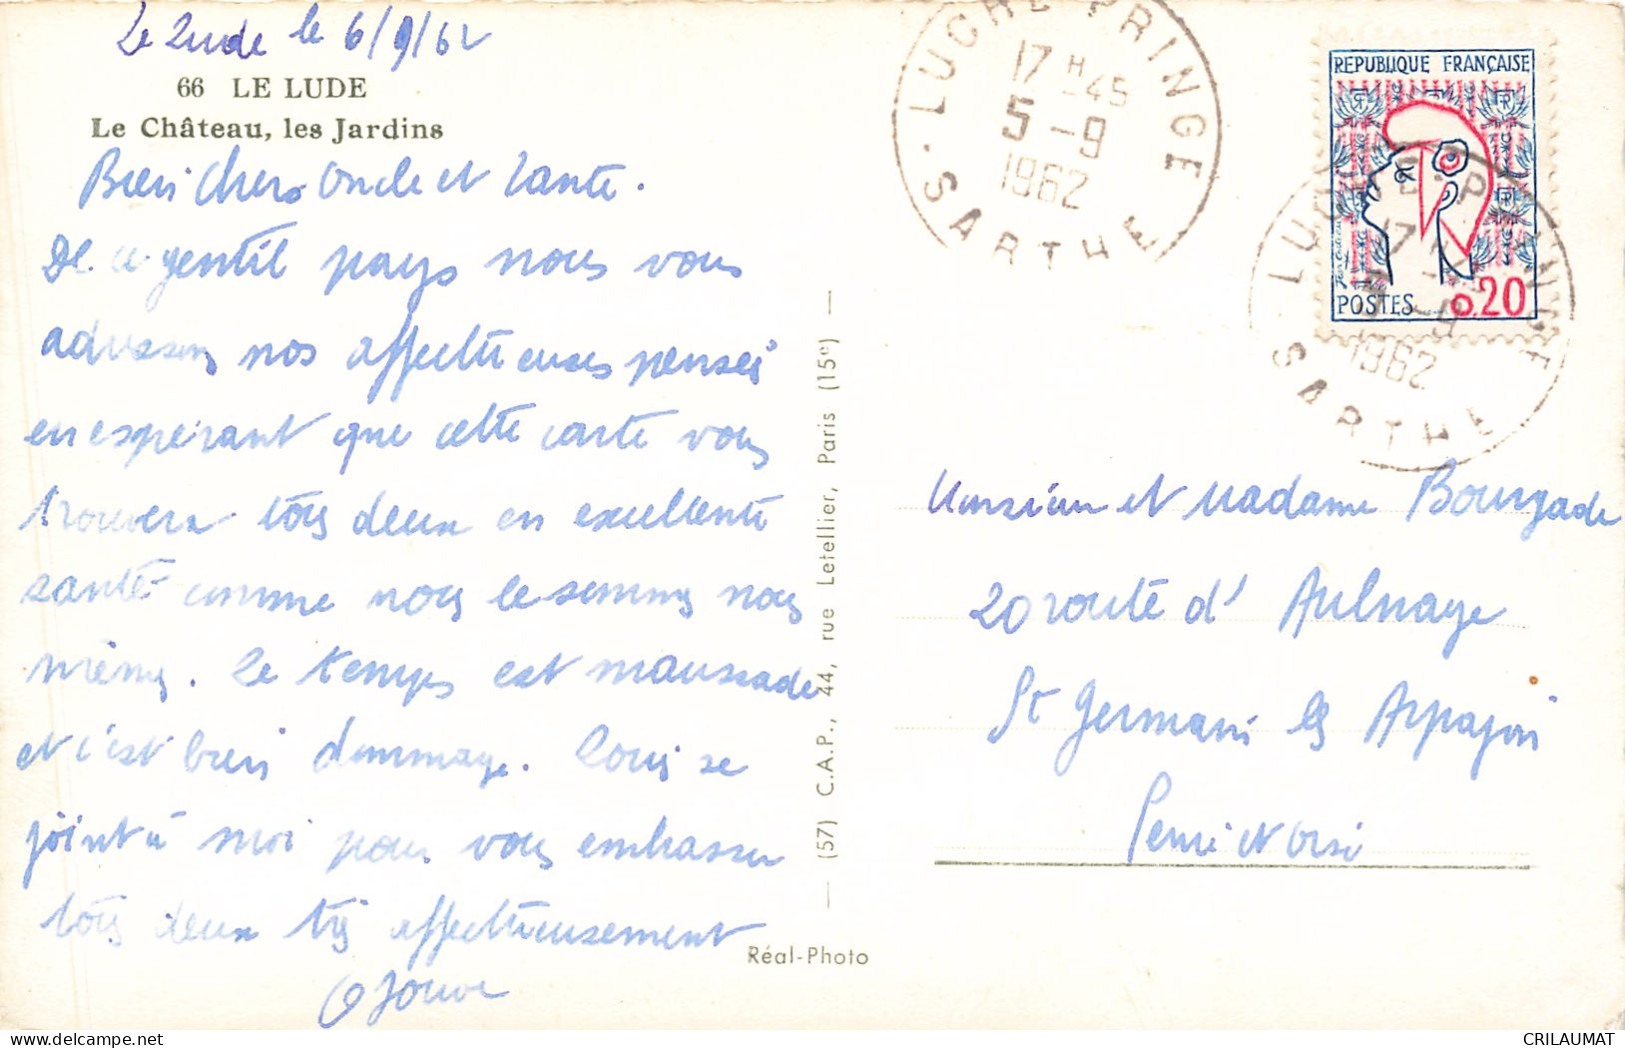 Le Lude le 6/9/62
66 LE LUDE
Le Château, les Jardins
Bien Chers Oncle et Tante.
De ce gentil pays nous vous
adressons nos affectueuses pensées
en espérant que cette carte vous
trouvera tous deux en excellente
santé comme nous le sommes nous
mêmes. Le temps est maussade
et c'est bien dommage. Louis se
joint à moi pour vous embrasser
tous deux très affectueusement
Jouve
(57) C.A.P., 44, rue Letellier, Paris (15e)
Réal-Photo
LUCHE PRINGE
17 H 45
5 - 9
1962
SARTHE
REPUBLIQUE FRANÇAISE
POSTES 0.20
LUCHE PRINGE
17 H 45
5 - 9
1962
SARTHE
Monsieur et Madame Bourgade
20 route d'Aulnaye
St Germain les Arpajon
Seine et Oise
CRILAUMAT